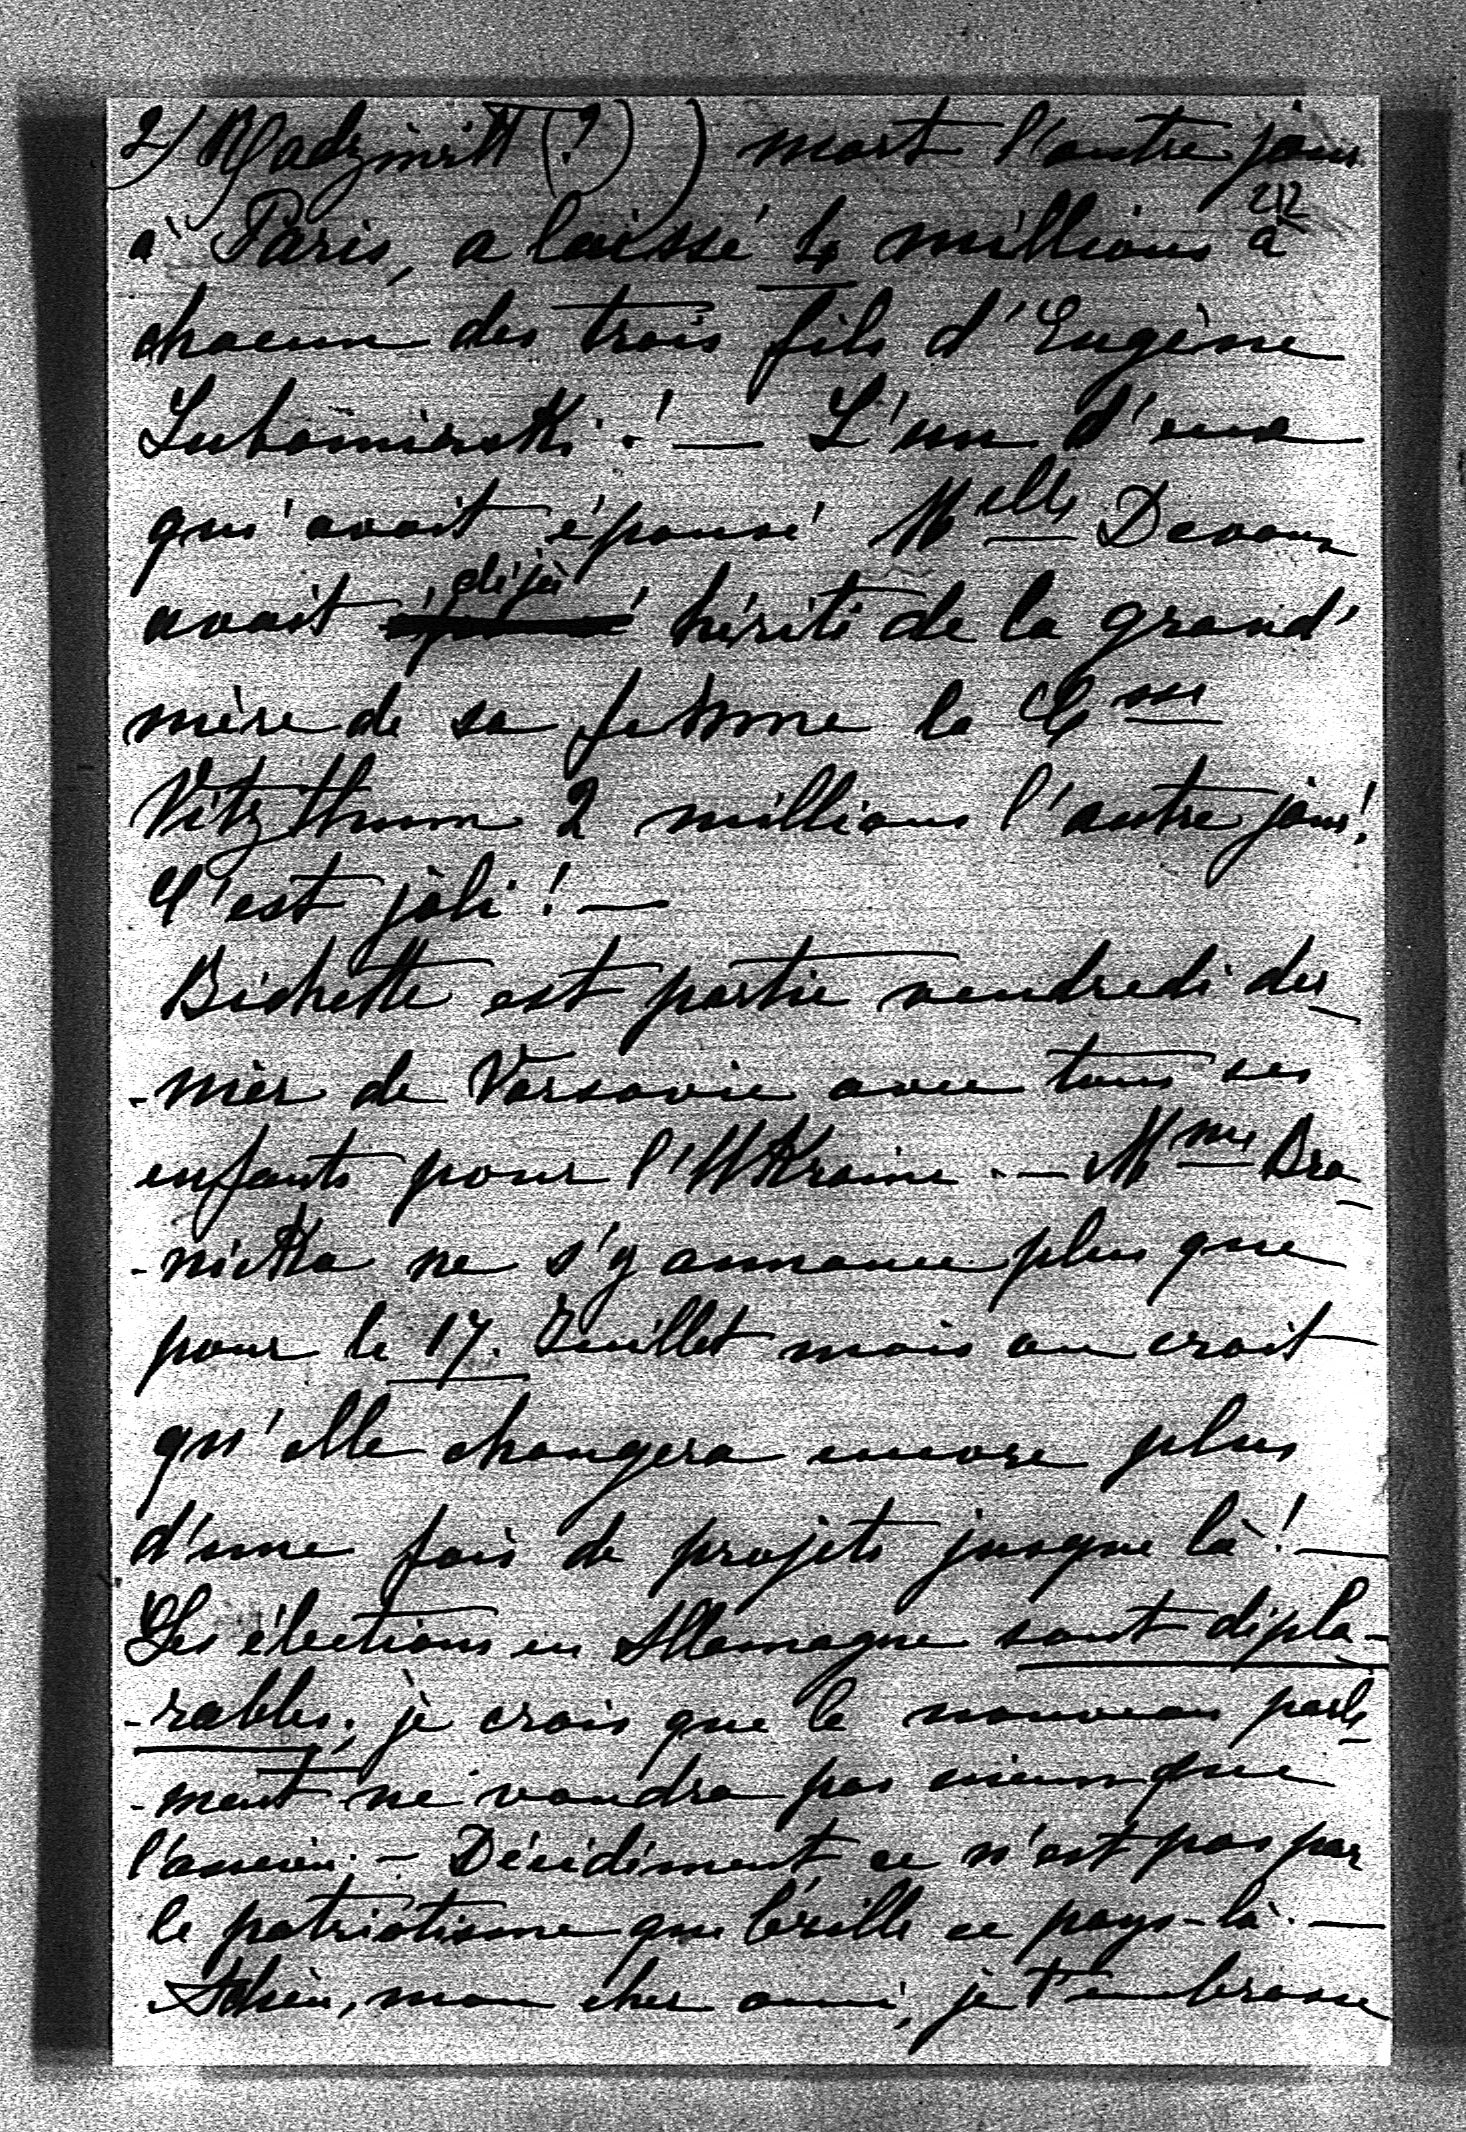 2/ Radziwill (?) ) mort l'autre jour
212
à Paris, a laissé 4 millions à
chacun des trois fils d'Eugène
Lubomirski! — L'un d'eux
qui avait épousé Melle
avait déjà hérité de la grand'
mère de sa femme la Ctesse
Vitzthum 2 millions l'autre jour!
C'est joli! —
Bichette est partie vendredi der
-nier de Varsovie avec tous ses
enfants pour l'Ukraine. — Mme Bra
-nicka ne s'y annonce plus que
pour le 17. Juillet mais on croit
qu'elle changera encore plus
d'une fois de projets jusque là! —
Les élections en Allemagne sont déplo-
-rables; je crois que le nouveau parle
-ment ne vaudra pas mieux que
l'ancien. — Décidément ce n'est pas par
le patriotisme que brille ce pays-là. —
Adieu, mon cher ami, je t'embrasse